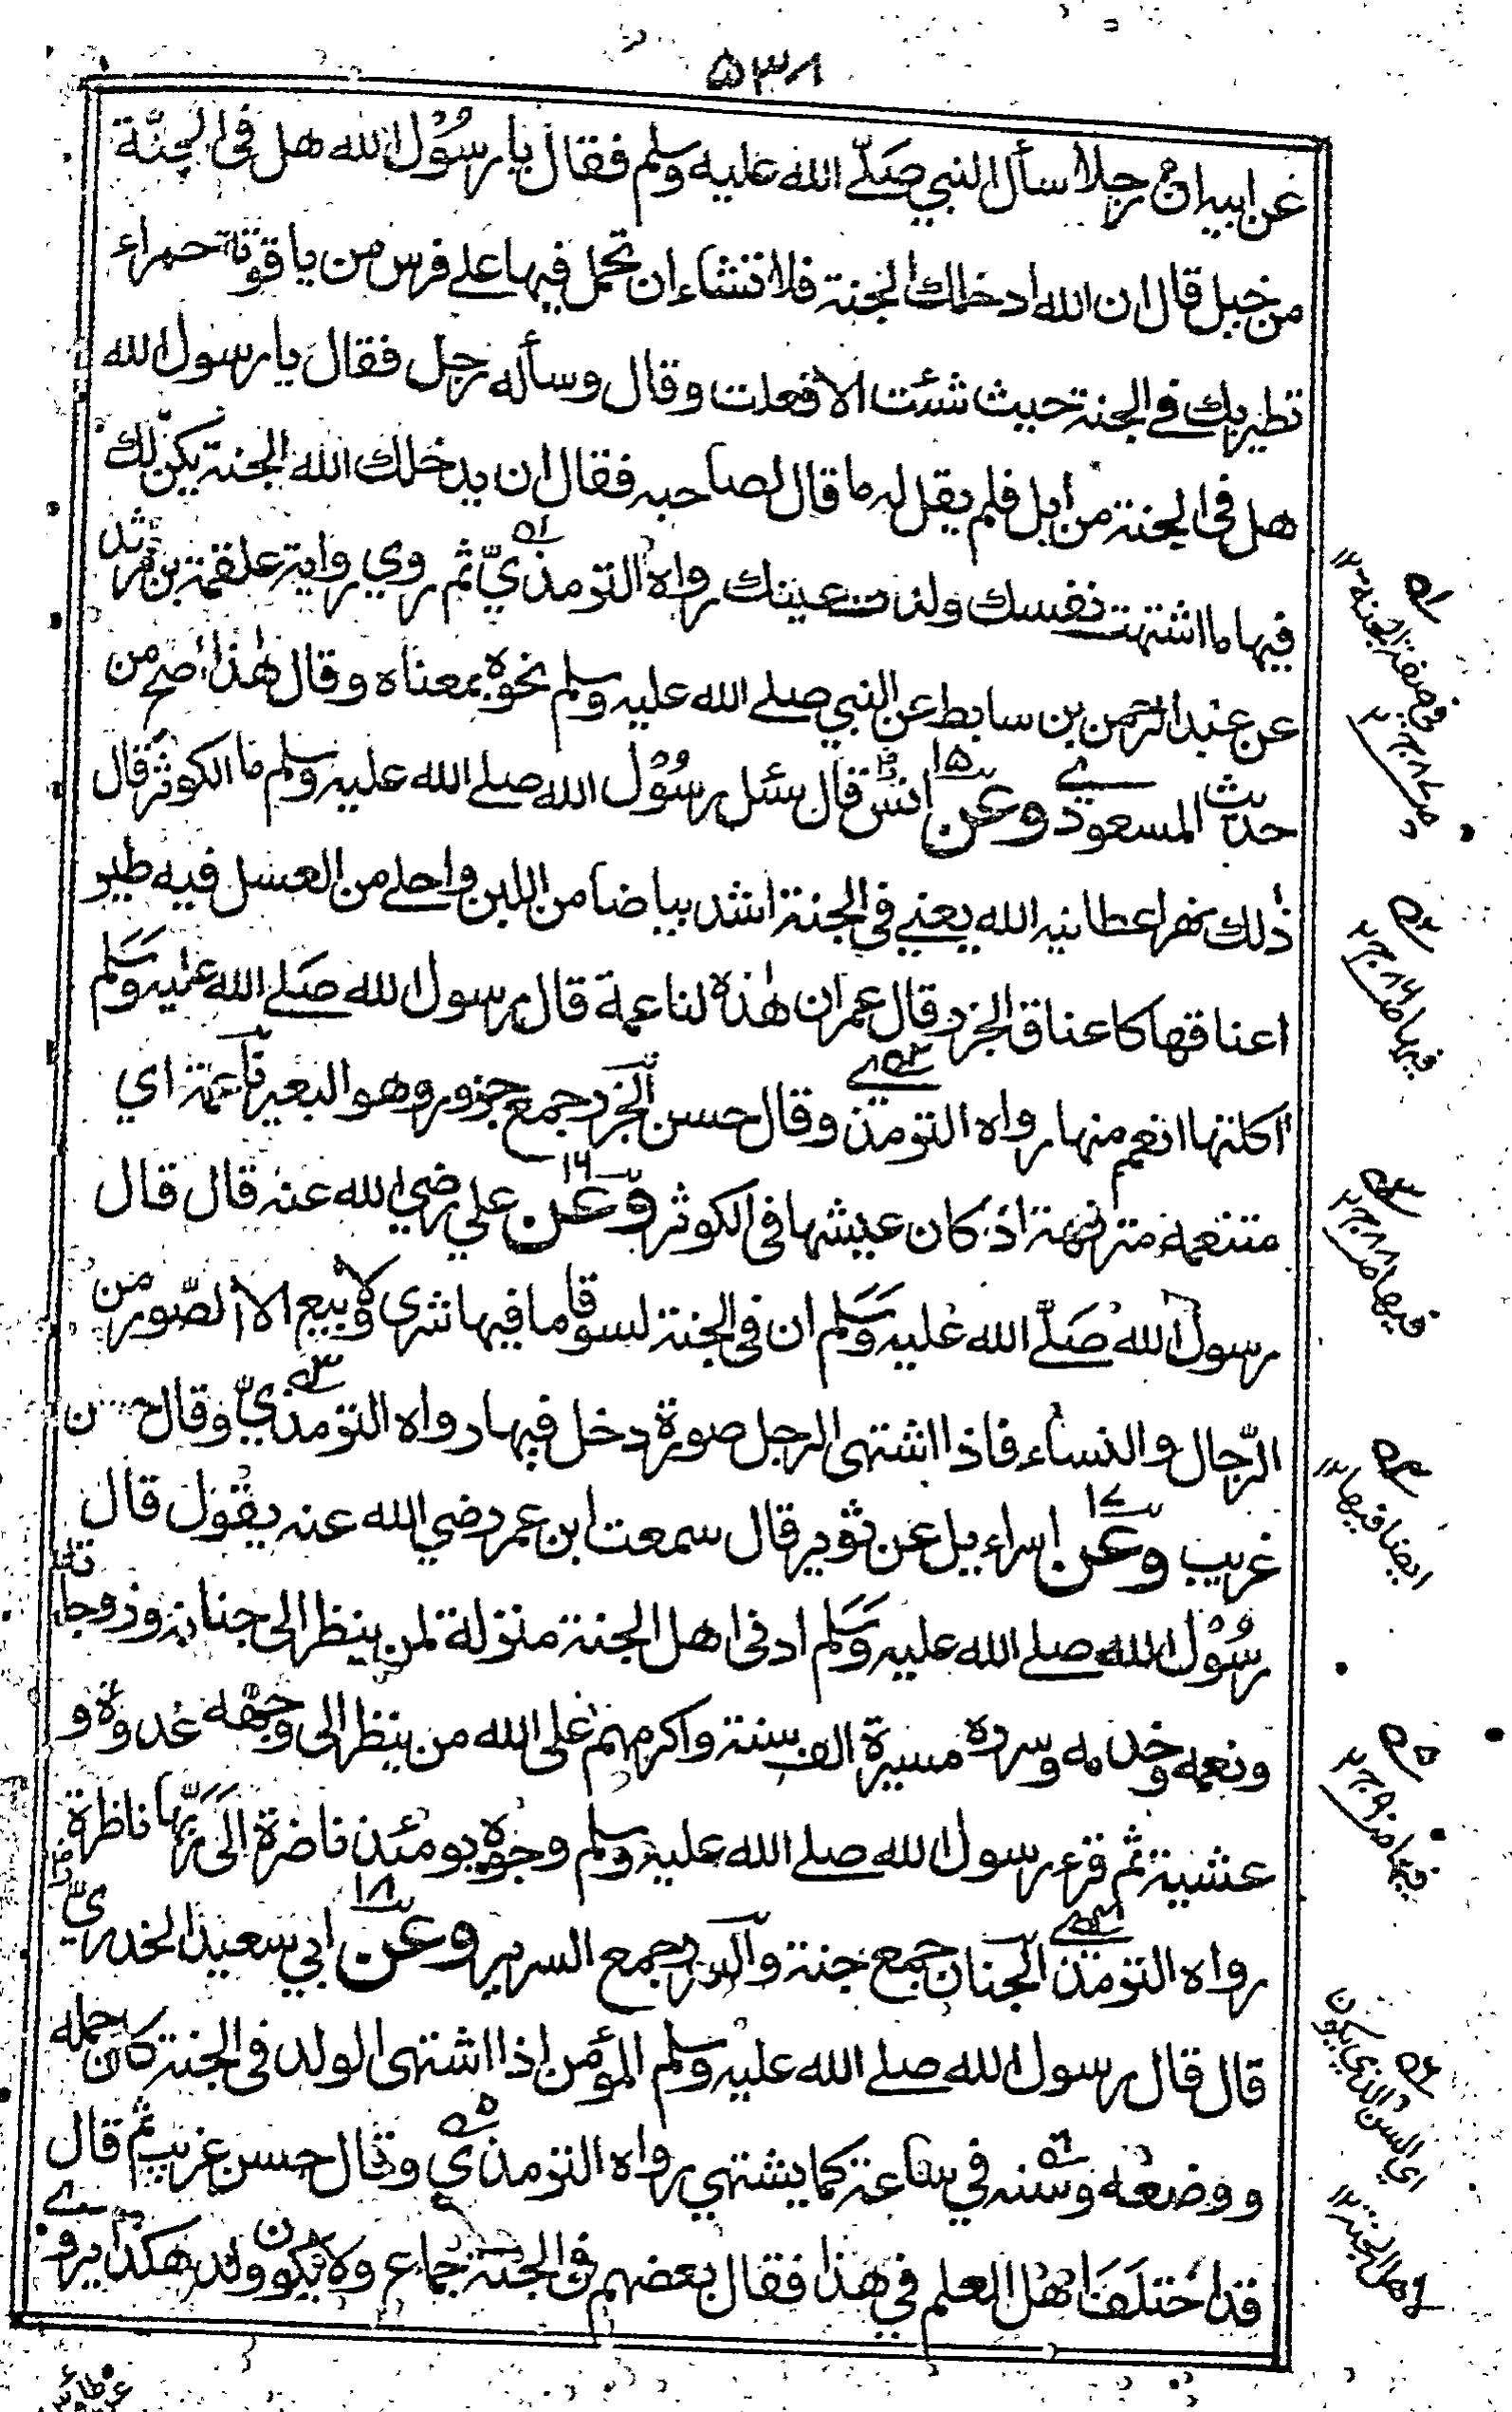 ۵۳۸
عن ابيه ان رجلا سأل النبي صلّے الله عليه وسلم فقال يا رسول الله هل في الجنّة
من خيل قال ان الله ادخلك الجنة فلا تشاء ان تحمل فيها علے فرس من ياقوتة حمراء
تطير بك في الجنة حيث شئت الا فعلت وقال وسأله رجل فقال يا رسول الله
هل في الجنة من ابل فلم يقل له ما قال لصاحبه فقال ان يدخلك الله الجنة يكن لك
فيها ما اشتهت نفسك ولذت عينك رواه الترمذيّ ثم روي رواية علقمة بن مرثد
عن عبد الرحمن بن سابط عن النبي صلے الله عليه وسلم نحوه بمعناه وقال هذا اصح من
حديث المسعودي وعن انس قال سئل رسول الله صلے الله عليه وسلم ما الكوثر قال
ذلك نهر اعطانيه الله يعني في الجنة اشد بياضا من اللبن واحلے من العسل فيه طير
اعناقها كاعناق الجزر قال عمر ان هذه لناعمة قال رسول الله صلے الله عليه وسلم
اكلتها انعم منها رواه الترمذي وقال حسن الجزر جمع جزور وهو البعير ناعمة اي
متنعمة مترفهة اذ كان عيشها في الكوثر وعن علي رضي الله عنه قال قال
رسول الله صلّے الله عليه وسلم ان في الجنة لسوقا ما فيها شرى ولا بيع الا الصّور من
الرّجال والنساء فاذا اشتهى الرجل صورة دخل فيها رواه الترمذيّ وقال حسن
غريب وعن اسراءيل عن ثوير قال سمعت ابن عمر رضي الله عنه يقول قال
رسول الله صلے الله عليه وسلم ادنى اهل الجنة منزلة لمن ينظر الى جنانه وزوجاته
ونعمه وخدمه وسرره مسيرة الف سنة واكرمهم على الله من ينظر الى وجهه غدوة و
عشية ثم قرء رسول الله صلے الله عليه وسلم وجوه يومئذ ناضرة الى ربّها ناظرة
رواه الترمذي الجنان جمع جنة والسرر جمع السرير وعن ابي سعيد الخدريّ
قال قال رسول الله صلے الله عليه وسلم المؤمن اذا اشتهى الولد في الجنة كان حمله
ووضعه وسنه في ساعة كما يشتهي رواه الترمذي وقال حسن غريب ثم قال
قد اختلف اهل العلم في هذا فقال بعضهم في الجنة جماع ولا يكون ولد هكذا يروے
له۱
في صفة الجنة ۱۲
فيها
ايضا فيها ۱۲
اي السن الذي يكون
لاهل الجنة ۱۲